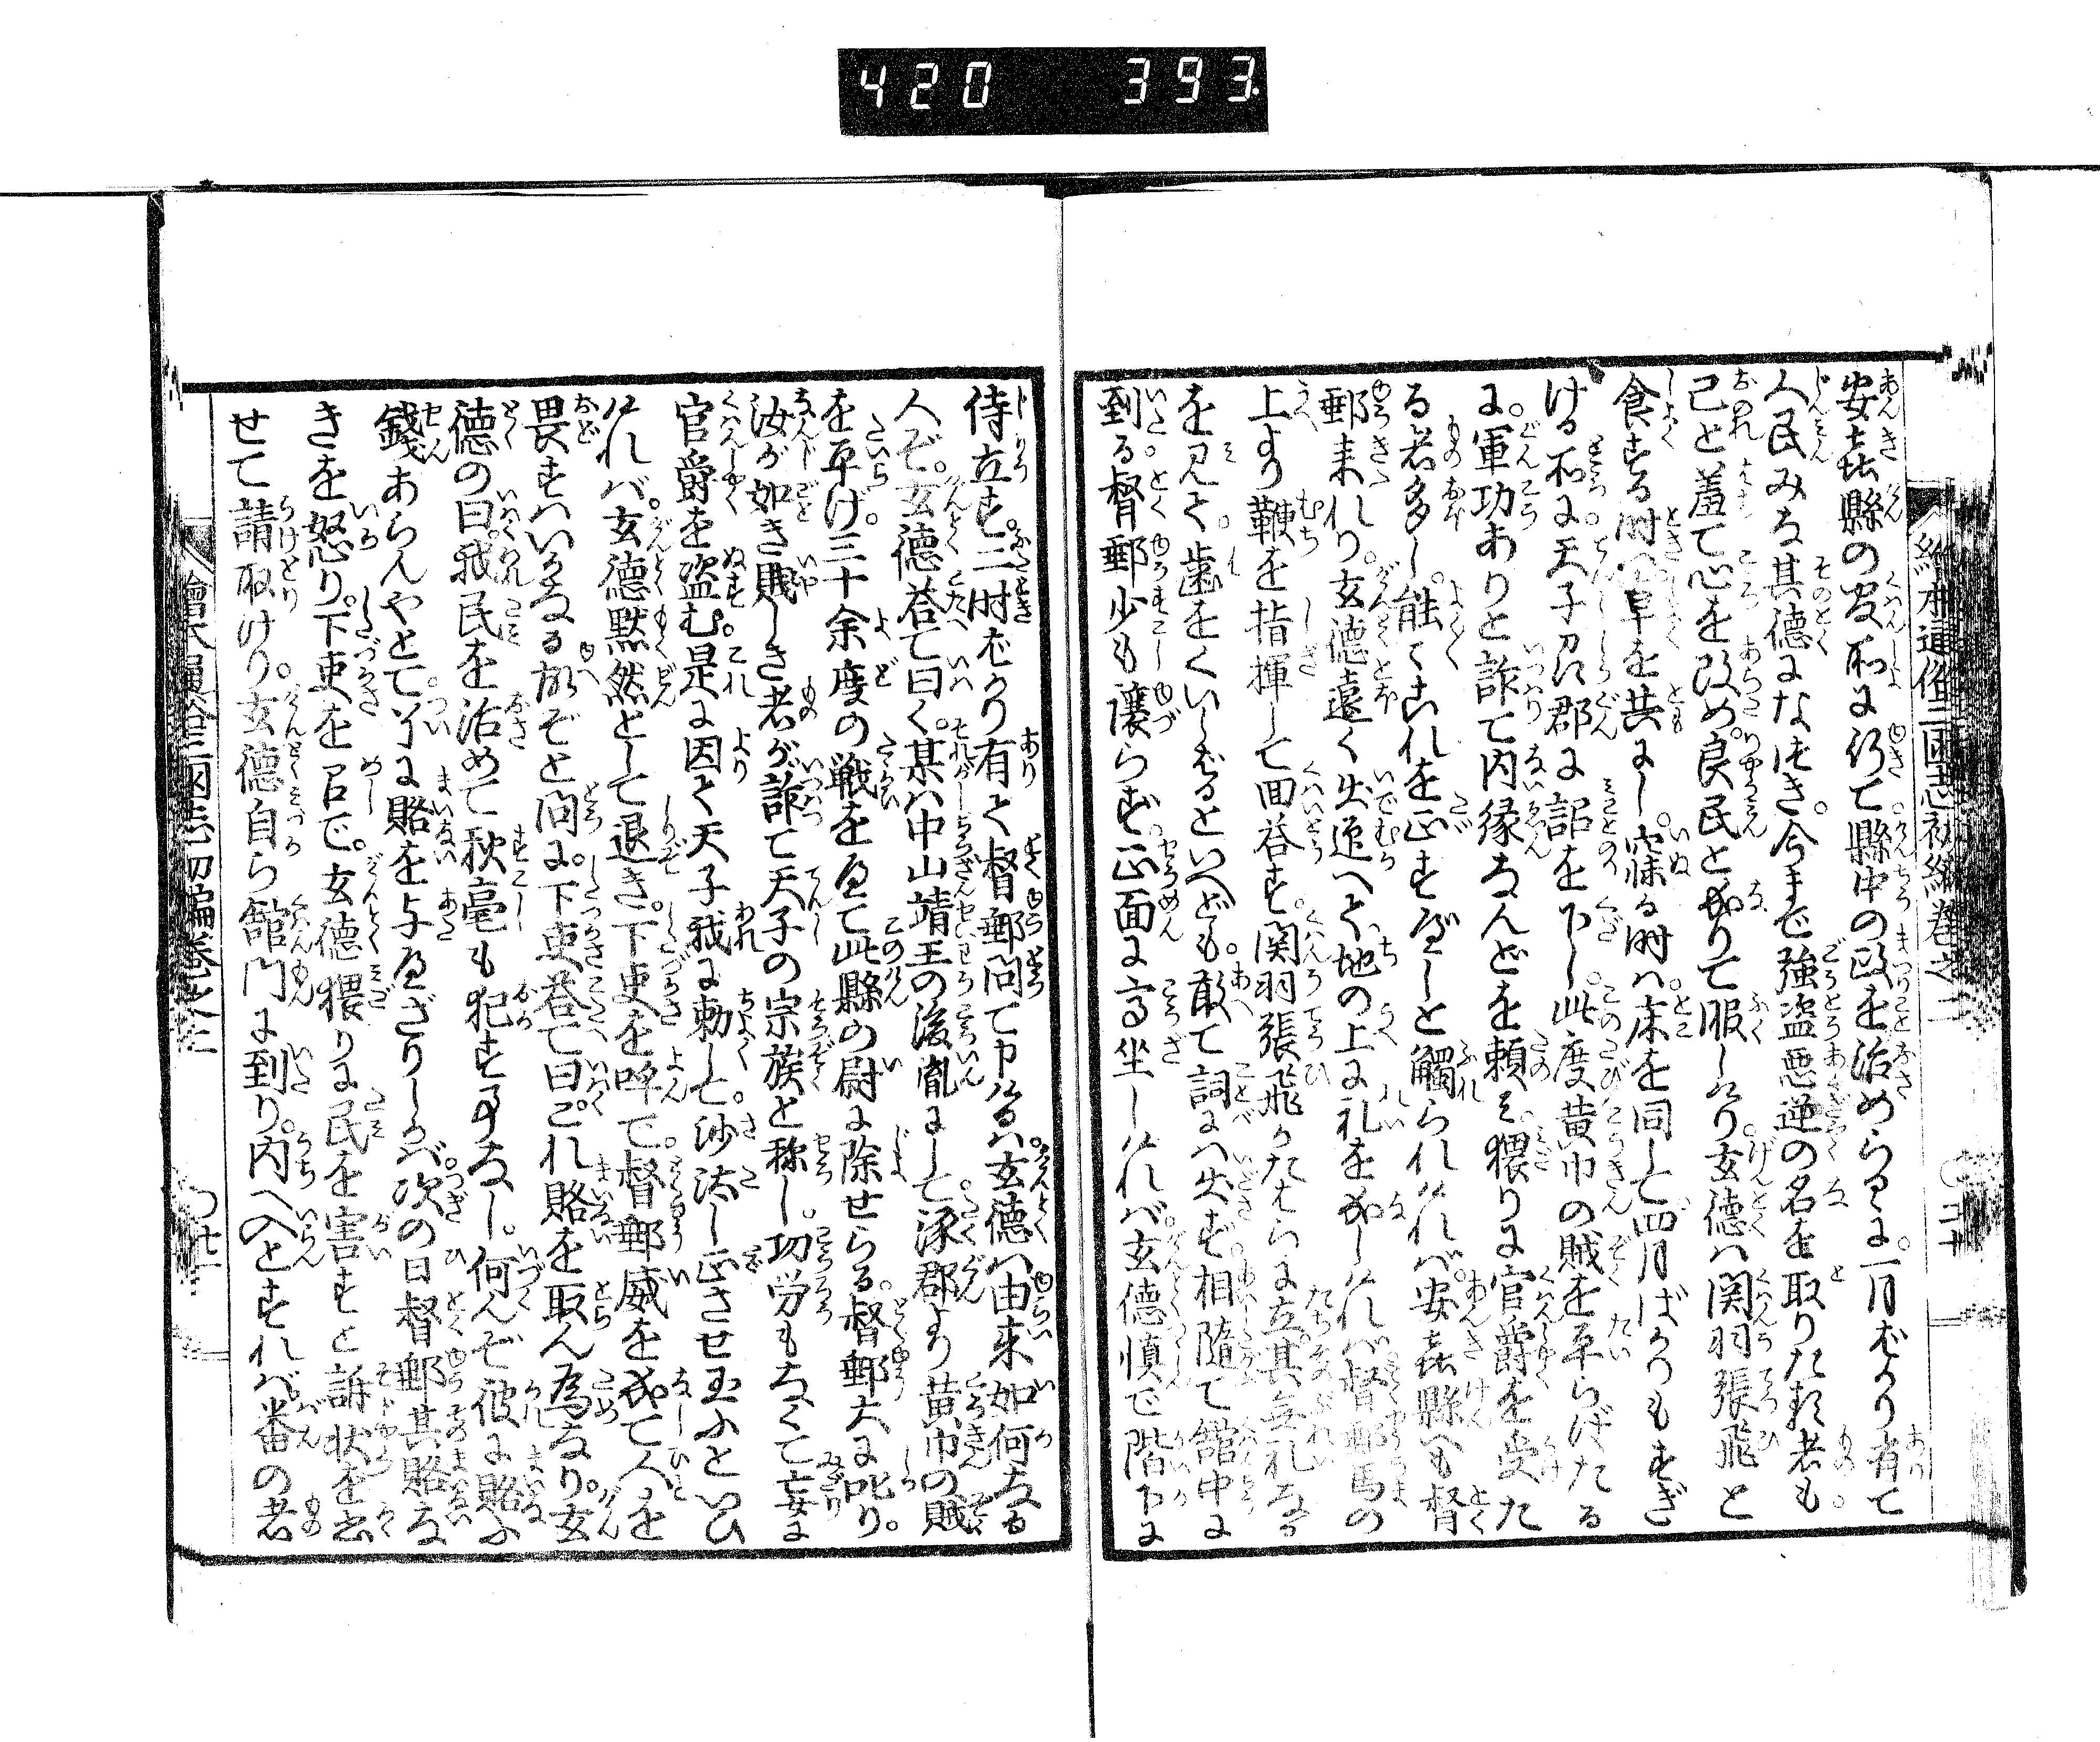 420 393
繪本通俗三國志初編巻之二
安喜縣の官所に行て縣中の政を治めらるゝに。一月ばかり有て
人民みな其徳になつき。今まで強盗悪逆の名を取りたる者も
己と羞て心を改め。良民と成りて服しけり。玄徳は関羽張飛と
食する時は卓を共にし。寐る時は。床を同して四月ばかりもすぎ
ける所に天子又諸郡に詔を下し。此度黄巾の賊を平らげたる
に。軍功ありと詐て内縁なんどを頼み。猥りに官爵を受た
る者多し。能くこれを正すべしと觸られければ。安喜縣へも督
郵来れり。玄徳遠く出迎へて地の上に礼を成しければ督郵馬の
上より鞭を指揮して回荅す。関羽張飛かたはらに立其無礼なる
を見て。歯をくいしばるといへども。敢て詞には出ず。相随て館中に
到る。督郵少も譲らず。正面に高坐しければ。玄徳慎で階下に
侍立す。二時ばかり有て督郵問て申けるは。玄徳は由来如何なる
人ぞ。玄徳荅て曰く。某は中山靖王の後胤にして。涿郡より黄巾の賊
を平げ。三十余度の戦を為て此縣の尉に除せらる。督郵大に叱り。
汝が如き賎しき者が詐て天子の宗族と称し。功労もなくて妄に
官爵を盗む。是に因て天子我に勅して。沙汰し正させ玉ふといひ
ければ。玄徳黙然として退き。下吏を呼で。督郵威を成て人を
畏すはいかなる故ぞと問に。下吏荅て曰。これ賂を取ん為なり。玄
徳の曰。我民を治めて秋毫も犯す事なし。何んぞ彼に賂ふ
錢あらんやとて。了に賂を与へざりしかば。次の日督郵其賂な
きを怒り。下吏を召で。玄徳猥りに民を害すと訴状を書
せて請取けり。玄徳自ら館門に到り。内へ入とすれば番の者
繪本通俗三國志初編巻之二